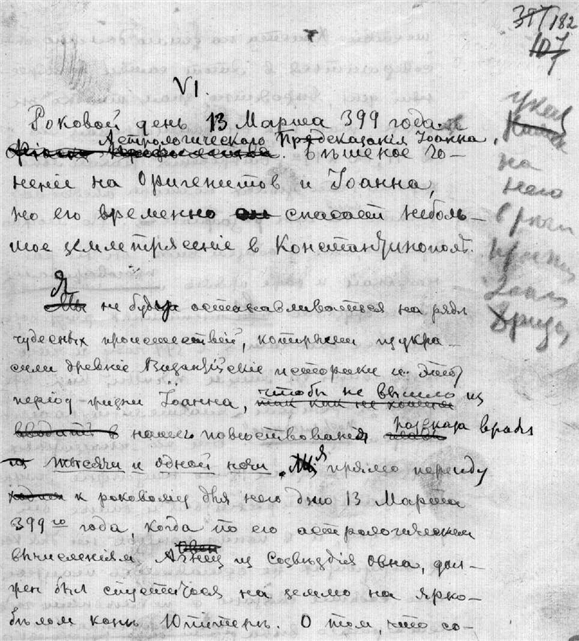 387/182
107
VI.
Роковой день 13 Марта 399 года
Астрологическаго Предсказанія Іоанна,
Бѣшеное го-
неніе на Оригенистов и Іоанна,
но его временно спасает неболь-
шое землетрясеніе в Константинополѣ.
на
него
Я не буду останавливаться на рядѣ
чудесных происшествій, которыми изукра-
сили древніе Византійскіе историки и этот
період жизни Іоанна, чтобы не вышло из
нашего повѣствованія разсказа вродѣ
тысячи и одной ночи. Я прямо перейду
к роковому для него дню 13 Марта
399го года, когда по его астрологическим
вычисленіям, Овен из Созвѣздія Овна, дол-
жен был спуститься на землю на ярко-
бѣлом конѣ Юпитерѣ. О том, что со-